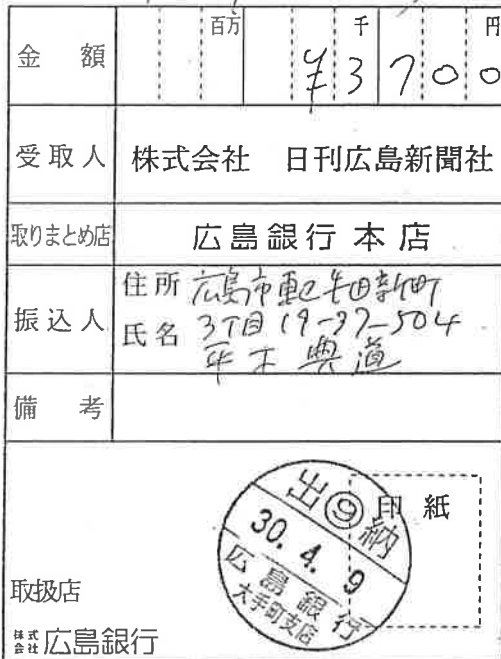 金額 百万 千 円
¥3700
受取人 株式会社 日刊広島新聞社
取りまとめ店 広島銀行本店
振込人 住所 広島市東区牛田新町
氏名 3丁目19-37-504
平木 典道
備考
出⑨納
印紙
30. 4. 9
広島銀行
大手町支店
取扱店
株式会社 広島銀行